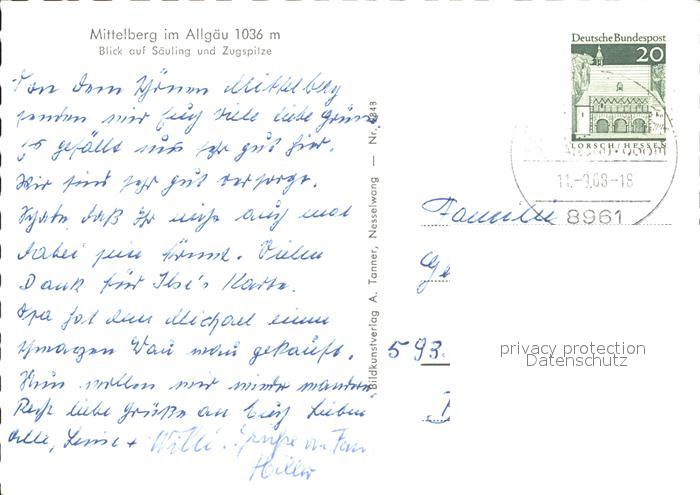 Mittelberg im Allgäu 1036 m
Blick auf Säuling und Zugspitze
Von dem schönen Mittelberg
senden wir Euch viele liebe Grüße
Es gefällt uns sehr gut hier.
Wir sind sehr gut versorgt.
Schade, daß Ihr nicht auch mal
dabei sein könnt. Vielen
Dank für Ilse's Karte.
Opa hat dem Michael einen
Wau wau gekauft.
Nun wollen wir wieder wandern
Recht liebe Grüße an Euch Lieben
alle, + Willi. Grüße v. Fam
Hiller
Bildkunstverlag A. Tanner, Nesselwang — Nr. 8848
Deutsche Bundespost
20
LORSCH/HESSEN
11.-9.68-18
8961
Familie
Ge
593
privacy protection
Datenschutz